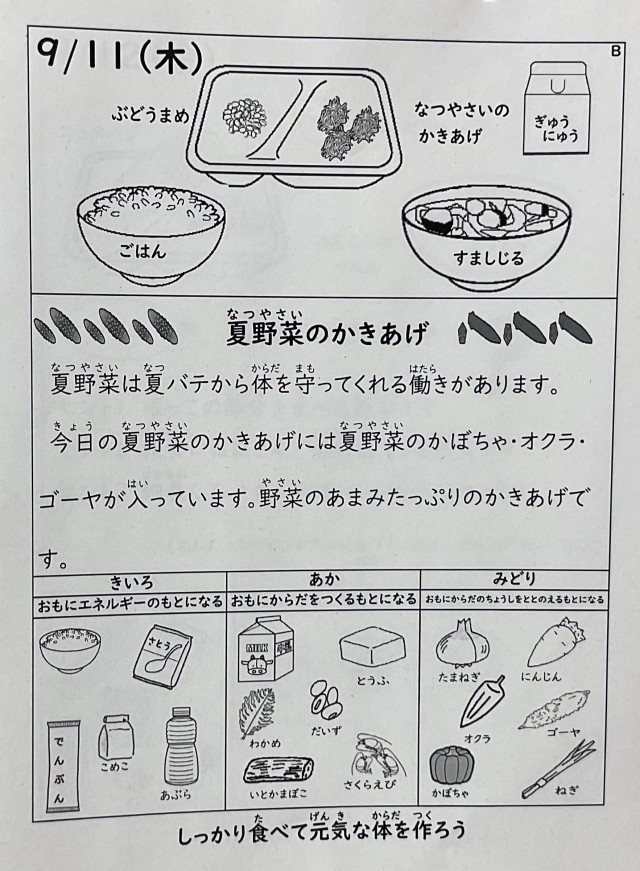 9/11(木)
B
ぶどうまめ
なつやさいの
かきあげ
ぎゅう
にゅう
ごはん
すましじる
なつやさい
夏野菜のかきあげ
なつやさい なつ からだ まも はたら
夏野菜は夏バテから体を守ってくれる働きがあります。
きょう なつやさい なつやさい
今日の夏野菜のかきあげには夏野菜のかぼちゃ・オクラ・
はい やさい
ゴーヤが入っています。野菜のあまみたっぷりのかきあげで
す。
きいろ あか みどり
おもにエネルギーのもとになる おもにからだをつくるもとになる おもにからだのちょうしをととのえるもとになる
さとう
でんぷん
こめこ
あぶら
MILK
とうふ
わかめ
だいず
いとかまぼこ
さくらえび
たまねぎ
にんじん
オクラ
ゴーヤ
かぼちゃ
ねぎ
た げんき からだ つく
しっかり食べて元気な体を作ろう